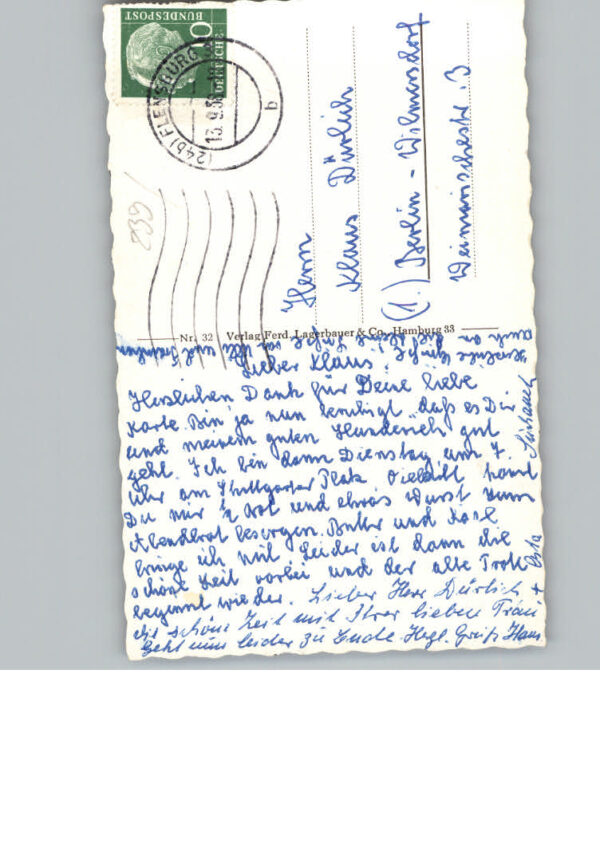 DEUTSCHE
BUNDESPOST
(24b) FLENSBURG
13.9.58
b
239
Herrn
Klaus Dürlich
(1.) Berlin - Wilmersdorf
Weimarischestr. 3
Nr. 32 Verlag Ferd. Lagerbauer & Co., Hamburg 33
Lieber Klaus!
Herzlichen Dank für Deine liebe
Karte. Bin ja nun beruhigt, daß es Dir
und meinem guten gut
geht. Ich bin dann Dienstag um 7.
Uhr am Stuttgarter Platz. Vielleicht kannst
Du mir ½ Brot und etwas Wurst zum
Abendbrot besorgen. Butter und Käse
bringe ich mit. Leider ist dann die
schöne Zeit vorbei und der alte Trott
beginnt wieder. Lieber Herr Dürlich
die schöne Zeit mit Ihrer lieben Frau
geht nun leider zu Ende. Hzgl. Grüße Hans